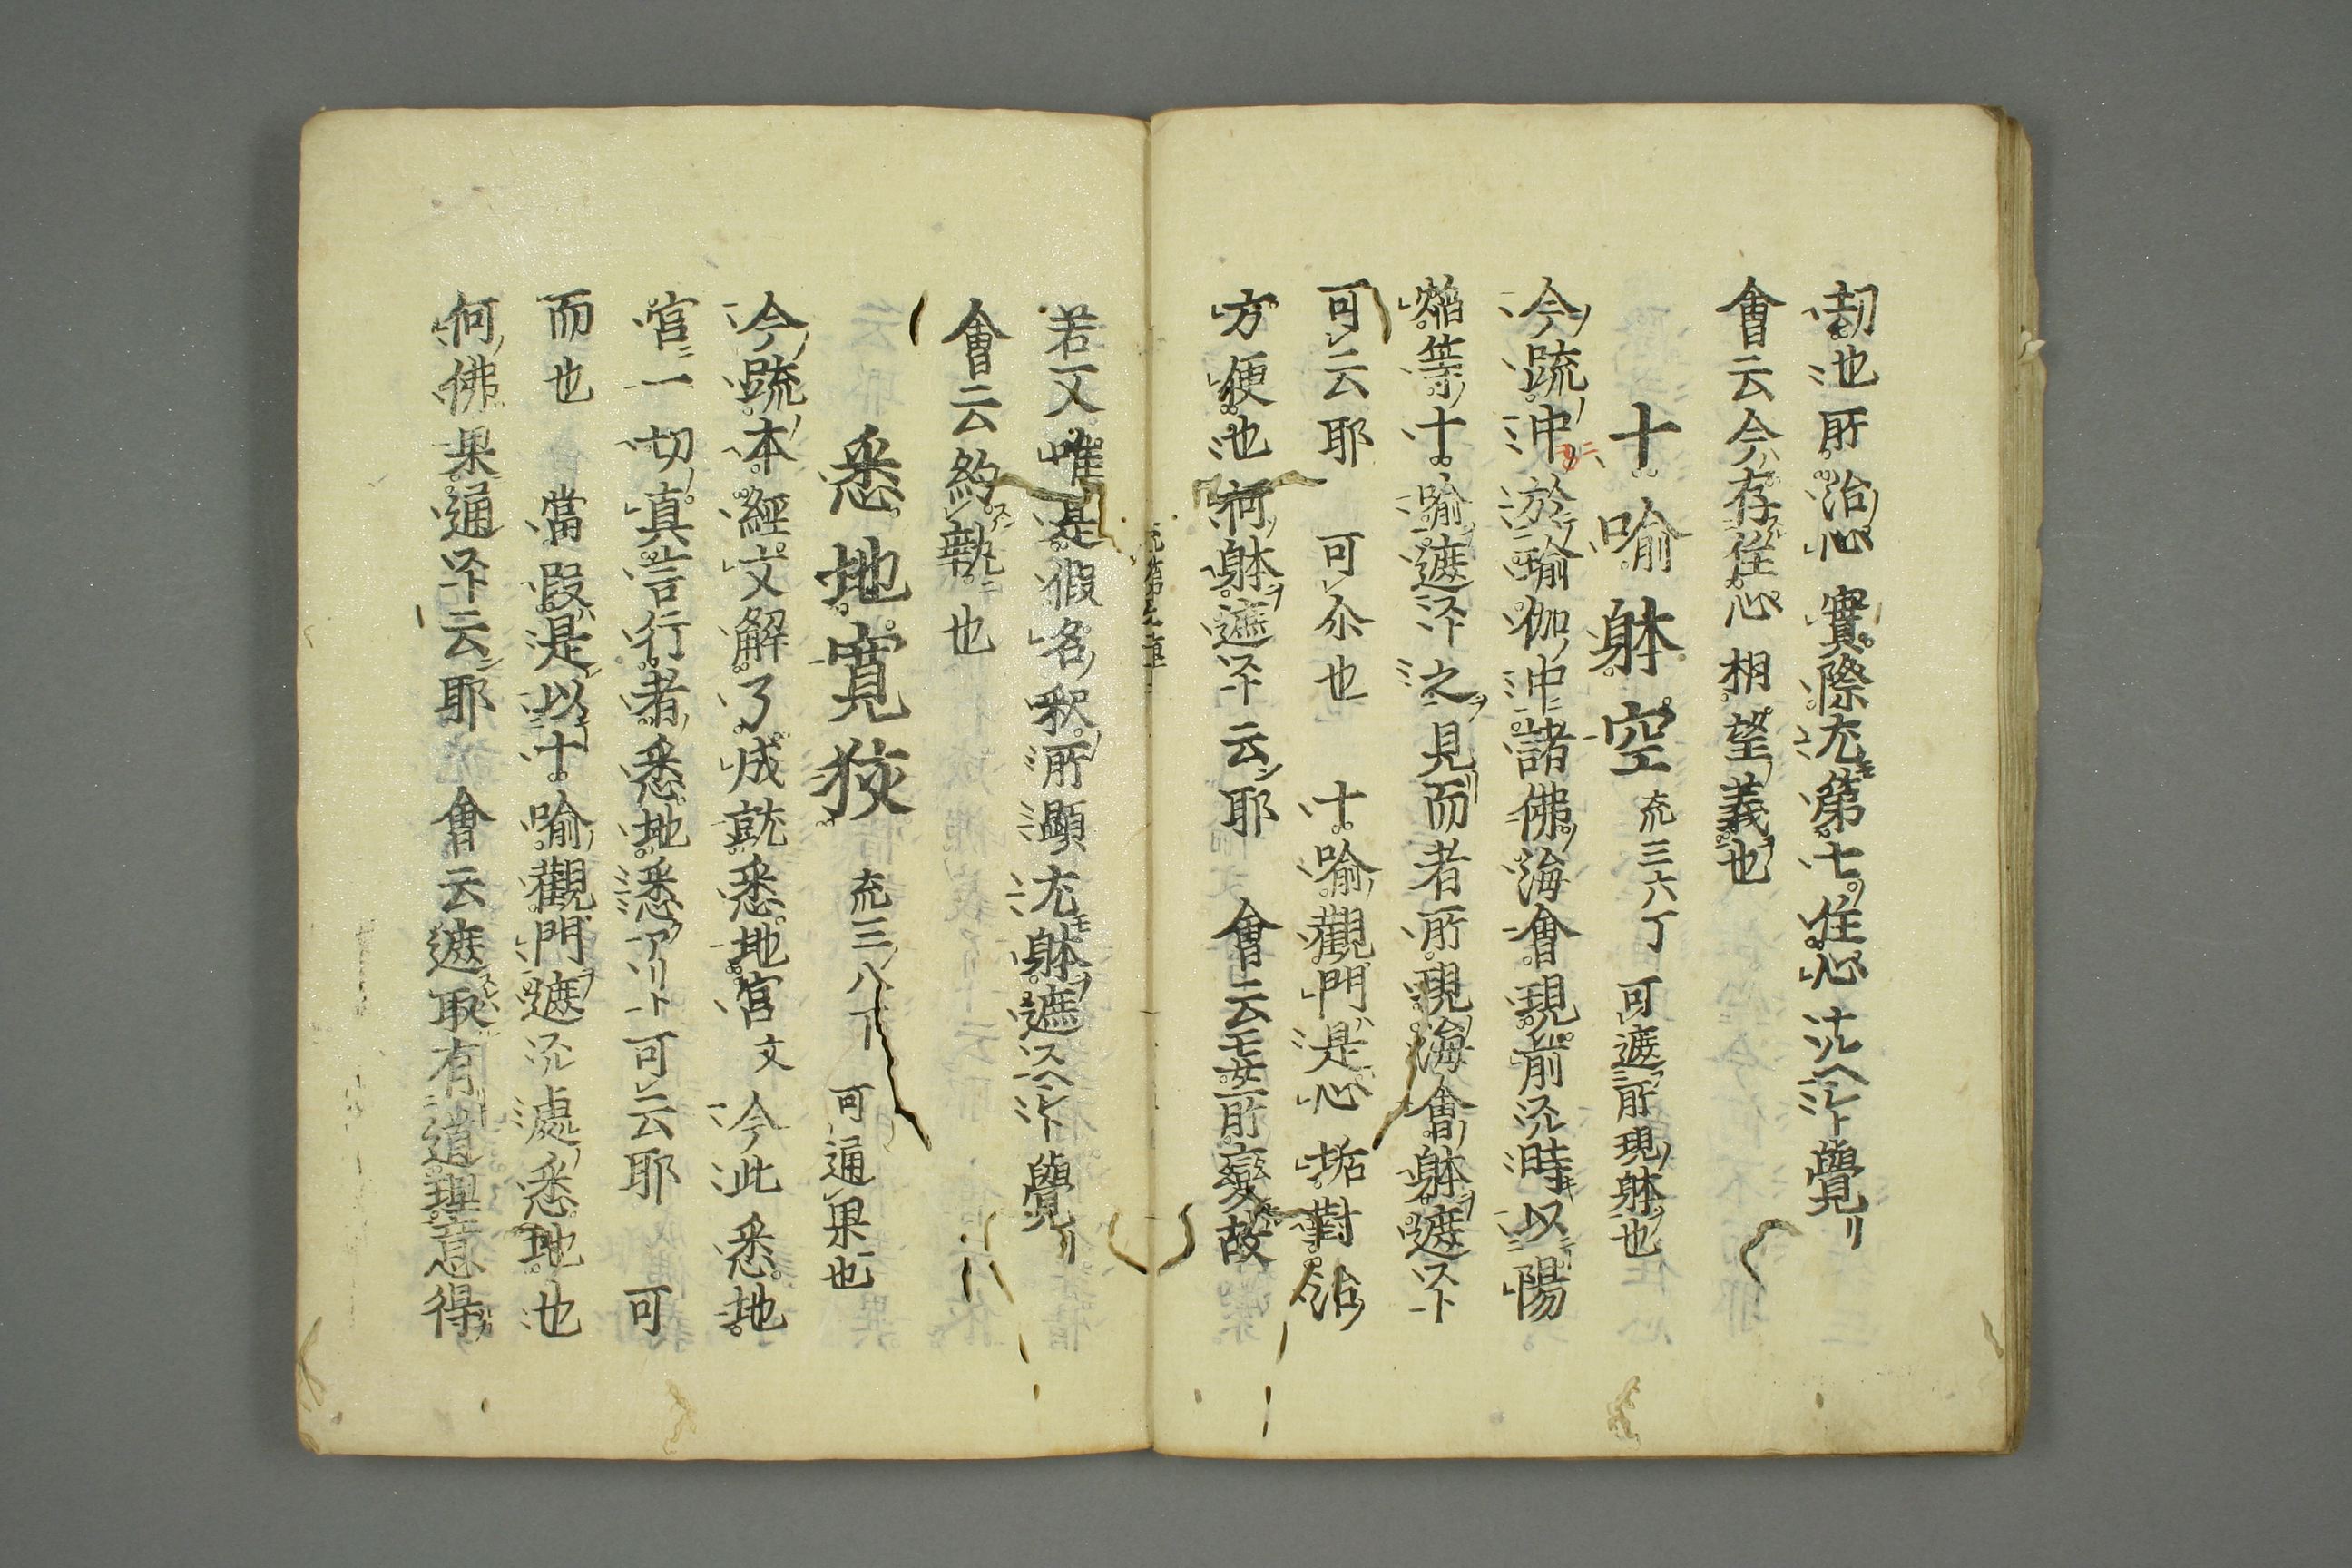 劫也所治心實際尤第七住心ナルヘシト覺リ
會云今存住心相望義也
十喩躰空 疏三六丁 可遮所現躰也
今疏中於瑜伽中諸佛海會現前スル時以陽
焔等十喩遮ストハ之見而者所現海會躰遮スト
可云耶 可尒也 十喩觀門是心垢對治
方便也何躰遮スト云耶 會云妄所變故
若又唯是假名釈所顯尤躰遮スヘシト覺リ
會云約執也
悉地寛狹 疏三八丁 可通果也
今疏本經文解了成就悉地宮文今此悉地
宮一切真言行者悉地悉アリト可云耶 可
而也 當段是以十喩觀門遮スル處悉地也
何佛果通スト云耶 會云遮取有道理意得